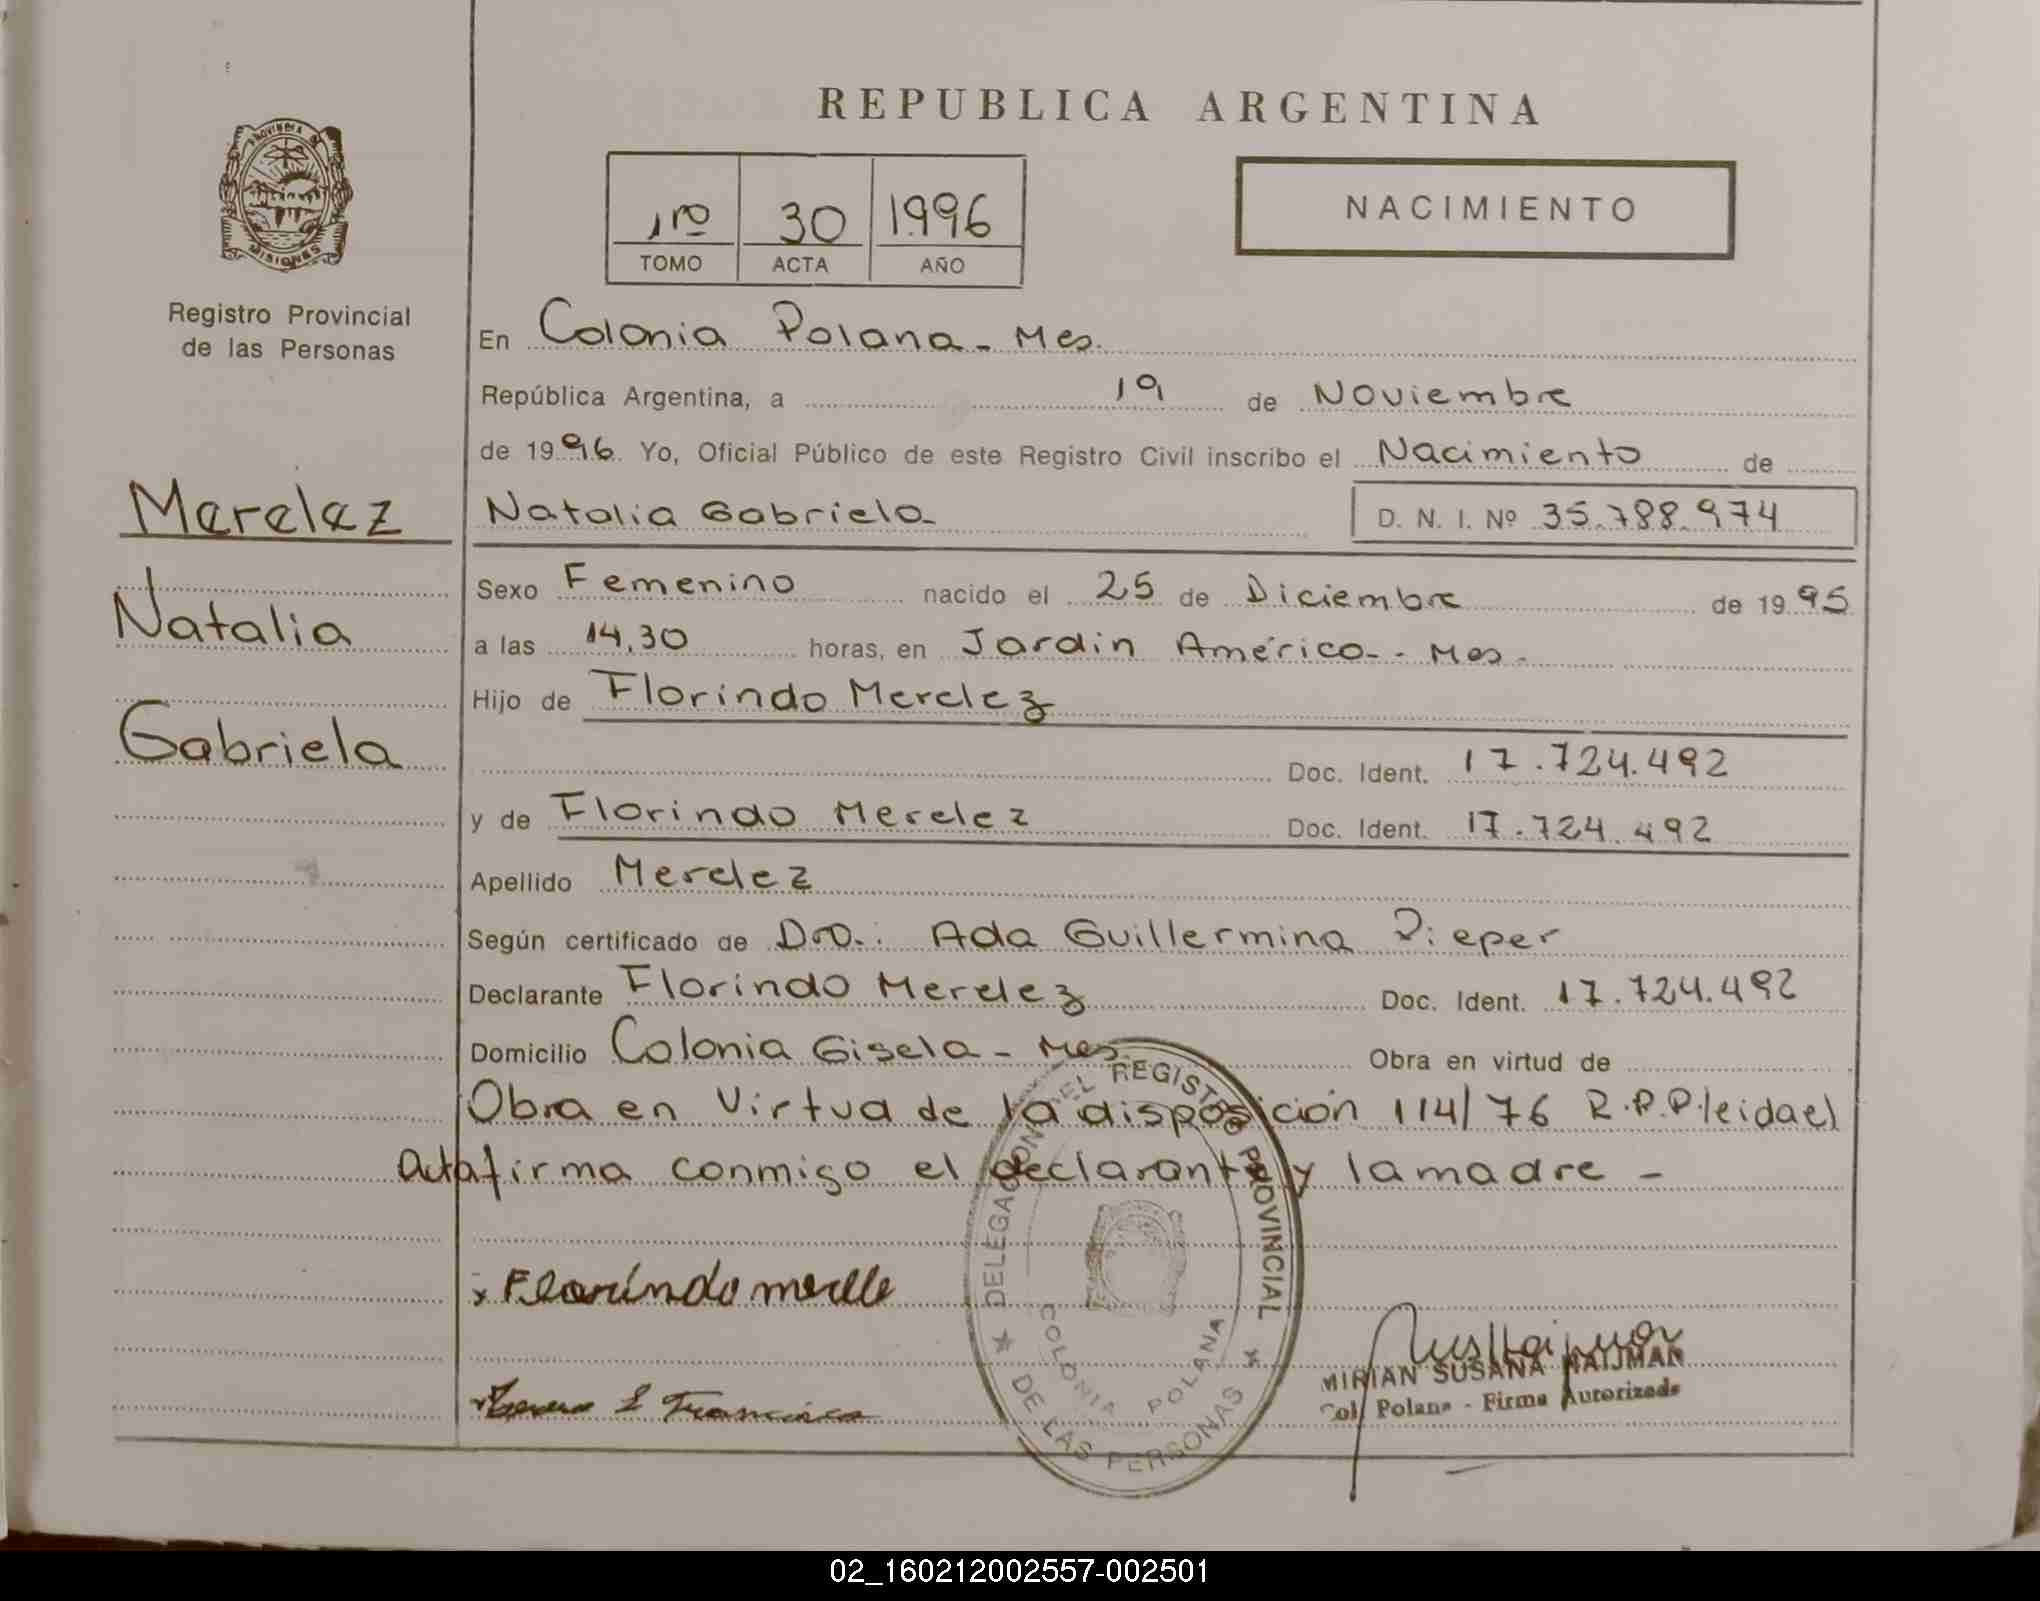 REPUBLICA ARGENTINA
PROVINCIA DE
MISIONES
Registro Provincial
de las Personas
1ro 30 1.996
TOMO ACTA AÑO
NACIMIENTO
En Colonia Polana - Mes.
República Argentina, a 19 de Noviembre
de 1996 Yo, Oficial Público de este Registro Civil inscribo el Nacimiento de
Merelez
Natalia Gabriela D. N. I. Nº 35.788.974
Natalia
Gabriela
Sexo Femenino nacido el 25 de Diciembre de 1995
a las 14,30 horas, en Jardin América - Mes.
Hijo de Florindo Merelez
Doc. Ident. 17.724.492
y de Florindo Merelez Doc. Ident. 17.724.492
Apellido Merelez
Según certificado de Dra.: Ada Guillermina Pieper
Declarante Florindo Merelez Doc. Ident. 17.724.492
Domicilio Colonia Gisela - Mes. Obra en virtud de
Obra en Virtud de la disposición 114/76 R.P.P. leida el
Acta firma conmigo el declarante y la madre -
x Florindo merelle
Francisca
DELEGACION DEL REGISTRO PROVINCIAL
DE LAS PERSONAS
COLONIA POLANA
MIRIAN SUSANA HAIJMAN
Col. Polana - Firma Autorizada
02_160212002557-002501